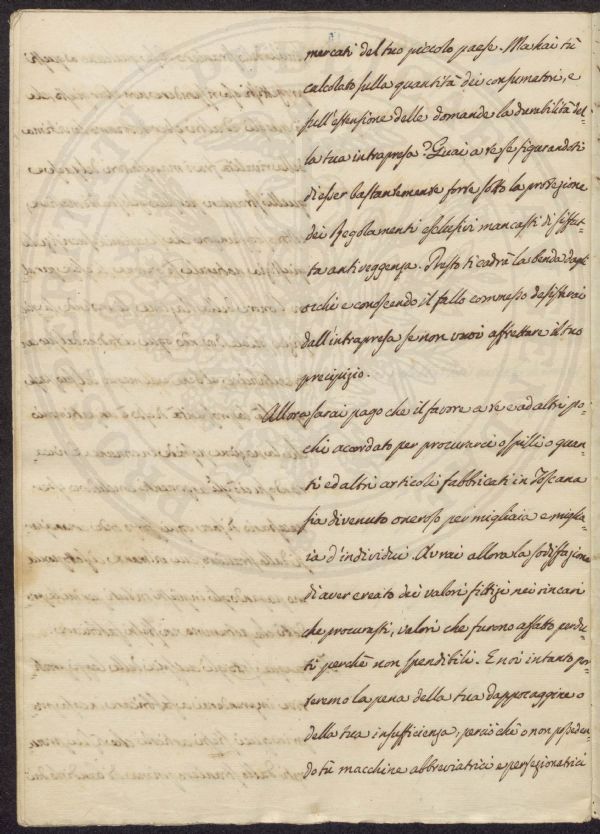 mercati del tuo piccolo paese. Ma hai tù
calcolato sulla quantità dei consumatori, e
sull'estensione delle domande la durabilità del-
la tua intrapresa? Guai a te se figurandoti
di esser bastantemente forte sotto la protezione
dei Regolamenti esclusivi mancasti di siffat-
ta antiveggenza. Presto ti cadrà la benda dagl'
occhi e conoscendo il fallo commesso desisterai
dall'intrapresa se non vuoi affrettare il tuo
precipizio.
Allora sarai pago che il favore a te e ad altri po-
chi acordato per procurarci o spilli o guan-
ti ed altri articoli fabbricati in Toscana
sia divenuto oneroso per migliaia e miglia-
ia d'individui. Avrai allora la sodisfazione
di aver creato dei valori fittizi nei rincari
che procurasti, valori che furono affatto perdu-
ti perchè non spendibili. E noi intanto por-
teremo la pena della tua dappocaggine o
della tua insufficienza, perciò chè o non posseden-
do tù macchine abbreviatrici e perfezionatrici